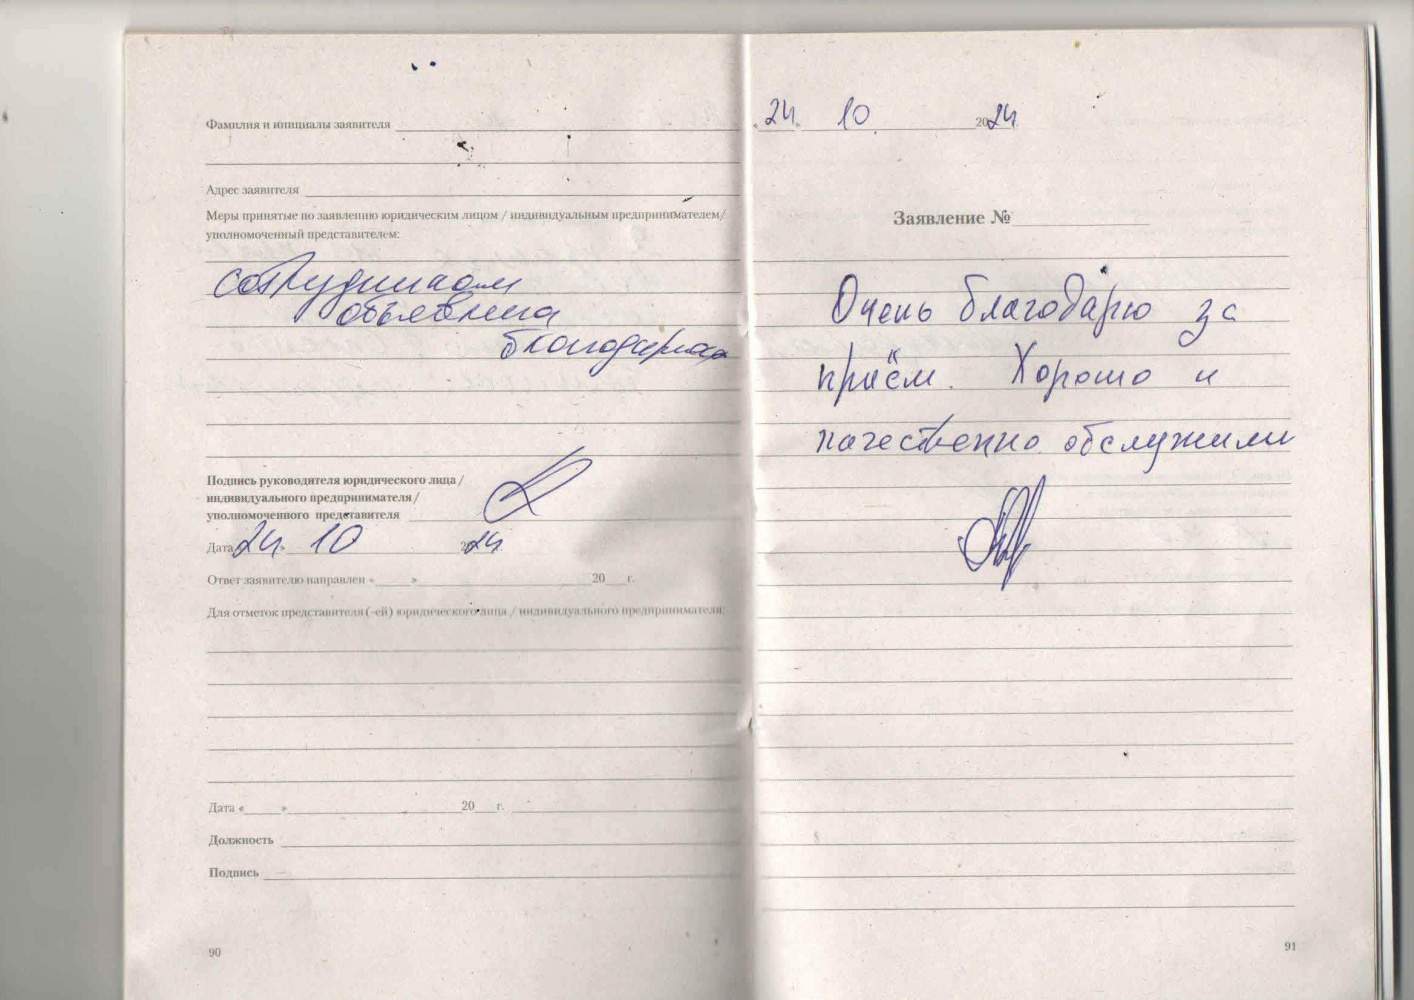 Фамилия и инициалы заявителя
Адрес заявителя
Меры принятые по заявлению юридическим лицом / индивидуальным предпринимателем/
уполномоченный представителем:
сотрудникам
объявлена
благодарность
Подпись руководителя юридического лица /
индивидуального предпринимателя /
уполномоченного представителя
Дата 24 » 10 2024
Ответ заявителю направлен « » 20 г.
Для отметок представителя (-ей) юридического лица / индивидуального предпринимателя:
Дата « » 20 г.
Должность
Подпись
90
« 24 » 10 2024
Заявление №
Очень благодарю за
приём. Хорошо и
качественно обслужили
91